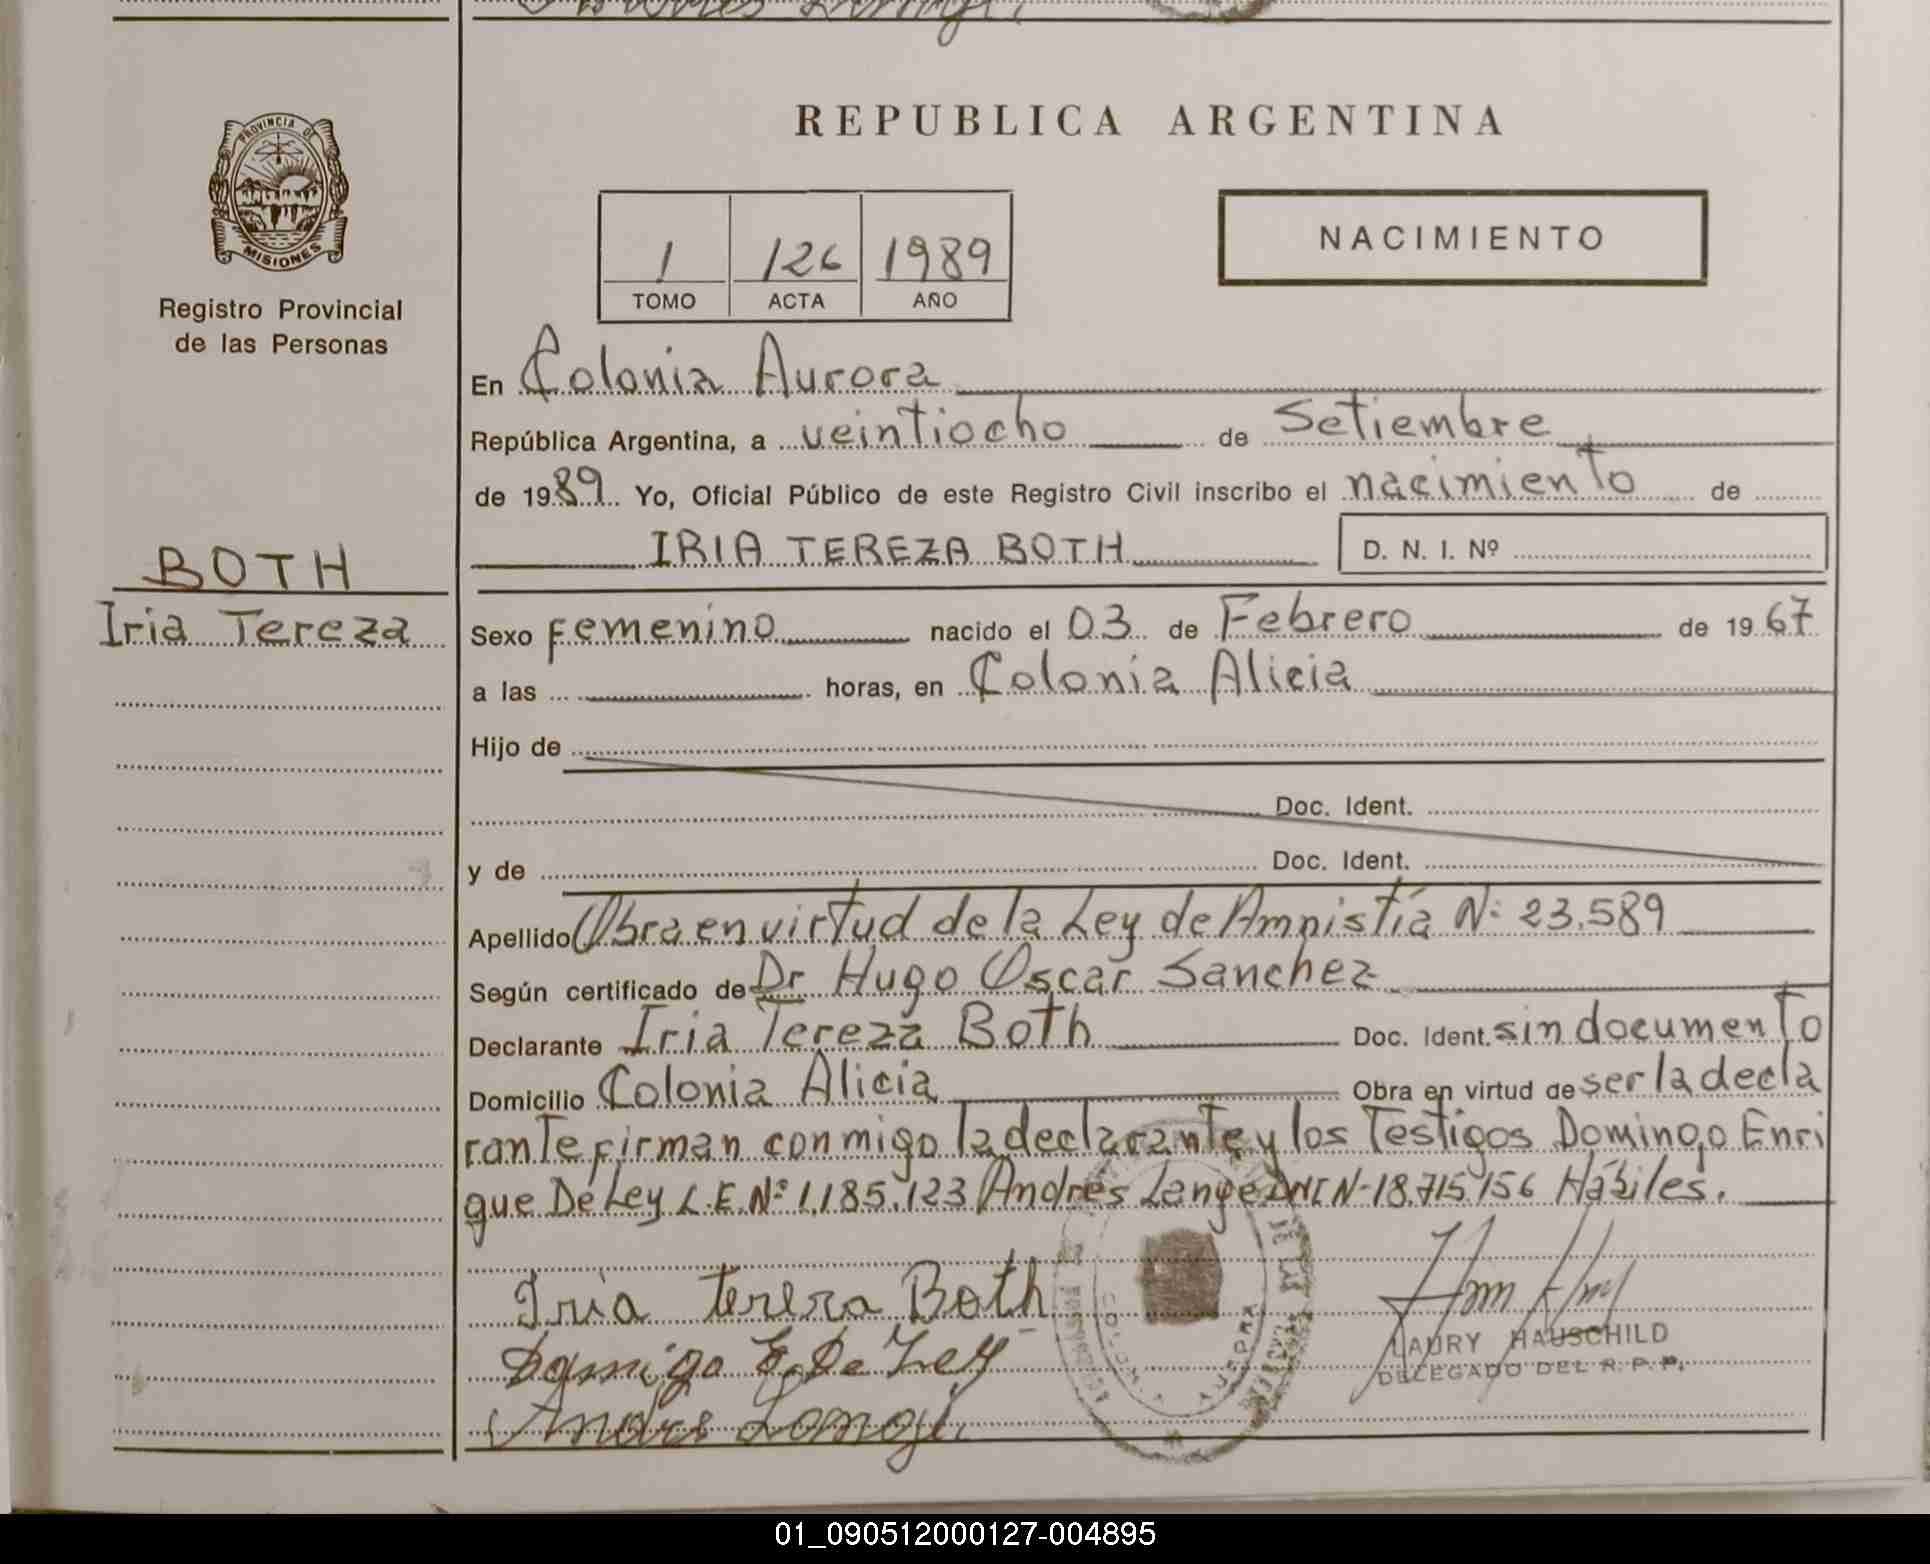 PROVINCIA DE
MISIONES
Registro Provincial
de las Personas
BOTH
Iria Tereza
REPUBLICA ARGENTINA
1 126 1989
TOMO ACTA AÑO
NACIMIENTO
En Colonia Aurora
República Argentina, a veintiocho de Setiembre
de 1989 Yo, Oficial Público de este Registro Civil inscribo el nacimiento de
IRIA TEREZA BOTH D. N. I. Nº
Sexo femenino nacido el 03 de Febrero de 1967
a las horas, en Colonia Alicia
Hijo de
Doc. Ident.
y de Doc. Ident.
Apellido Obra en virtud de la Ley de Amnistía Nº 23.589
Según certificado de Dr Hugo Oscar Sanchez
Declarante Iria Tereza Both Doc. Ident. sin documento
Domicilio Colonia Alicia Obra en virtud de ser la decla
rante firman conmigo la declarante y los Testigos Domingo Enri
que De Ley L.E. Nº 1.185.123 Andrés Lange DNI N-18.715.156 Hábiles.
Iria Tereza Both
Domingo E. De Ley
LAURY HAUSCHILD
DELEGADO DEL R. P. P.
01_090512000127-004895